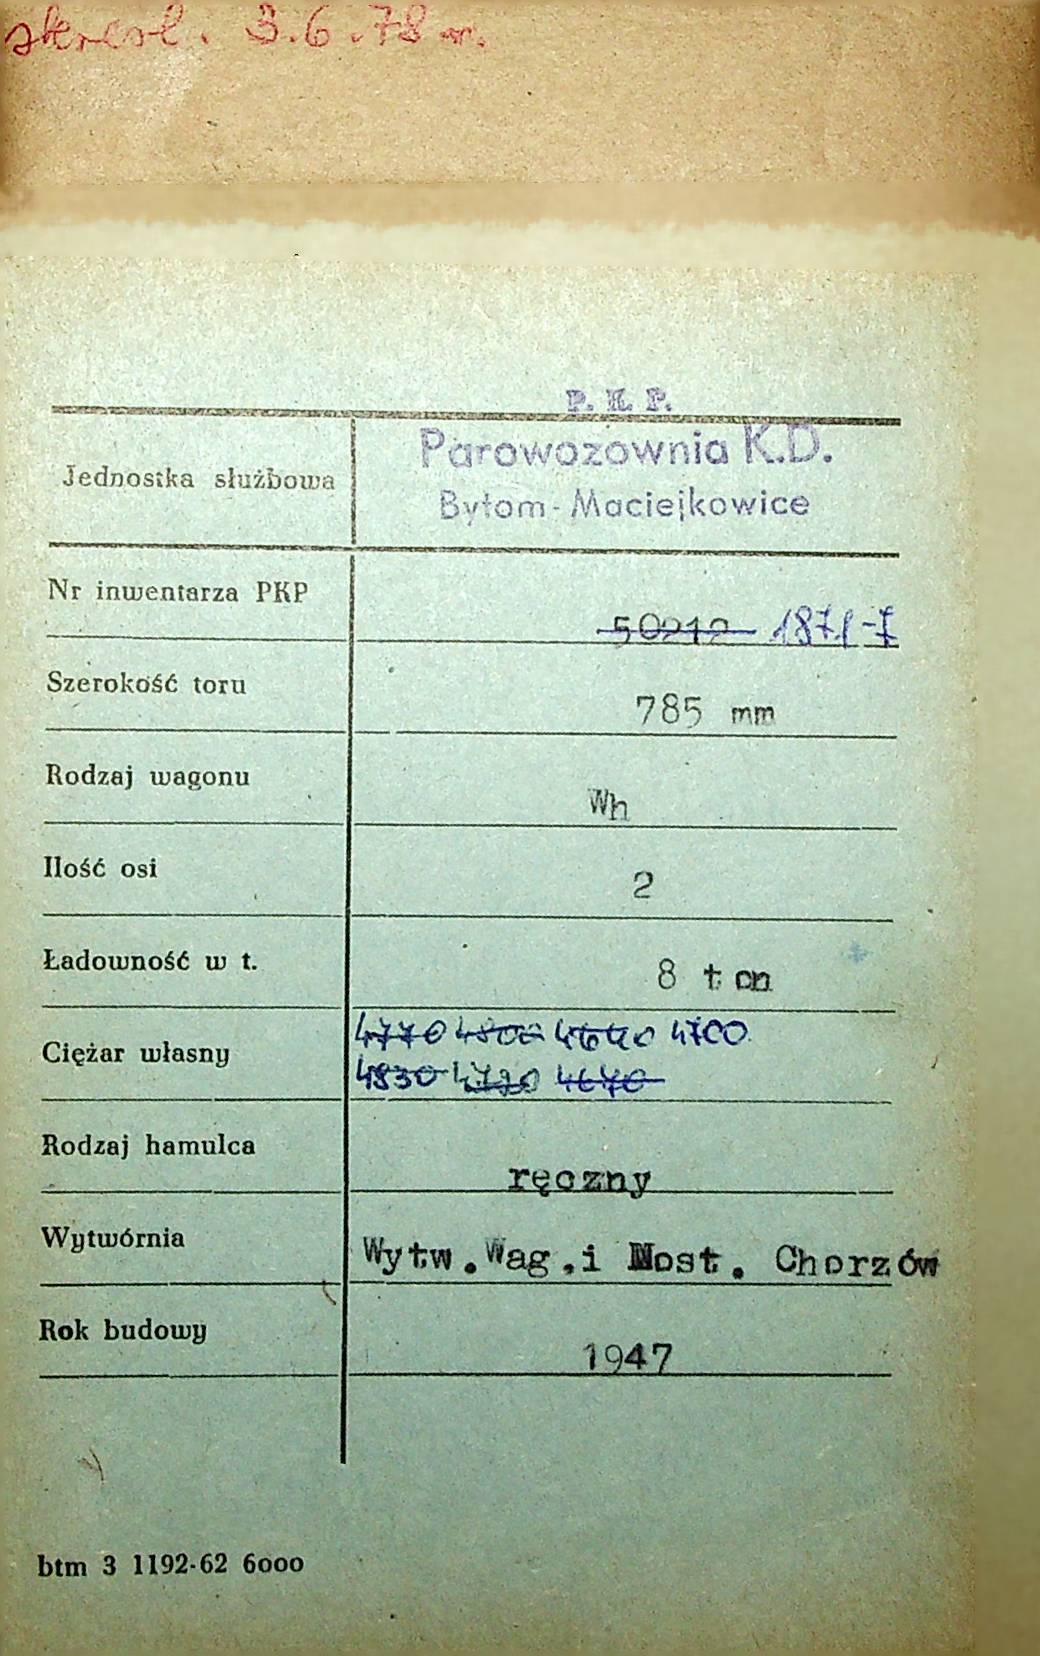 skreśl. 3.6.78 r.
P. K. P.
Parowozownia K.D.
Bytom-Maciejkowice
Jednostka służbowa
Nr inwentarza PKP 50212 1871-I
Szerokość toru 785 mm
Rodzaj wagonu Wh
Ilość osi 2
Ładowność w t. 8 ton
Ciężar własny 4770 4800 4640 4700
4830 4720 4670
Rodzaj hamulca ręczny
Wytwórnia Wytw.Wag.i Most. Chorzów
Rok budowy 1947
btm 3 1192-62 6000